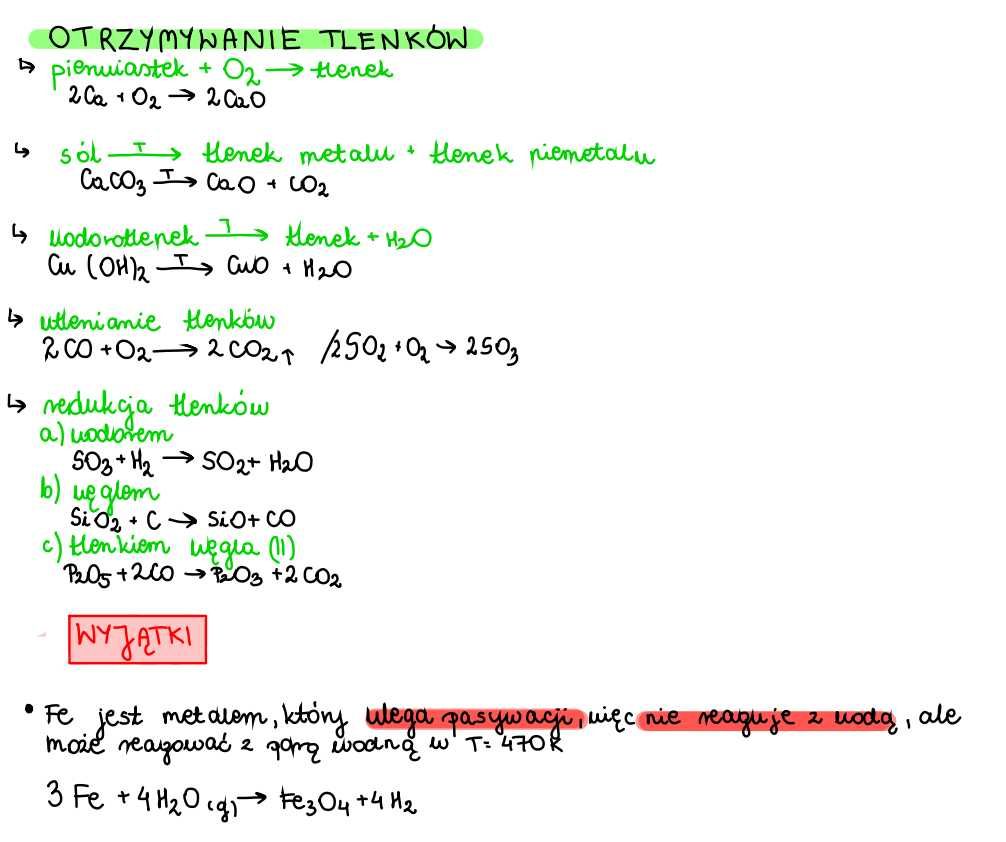 OTRZYMYWANIE TLENKÓW
↳ pierwiastek + O₂ → tlenek
2Ca + O₂ → 2CaO
↳ sól —T→ tlenek metalu + tlenek niemetalu
CaCO₃ —T→ CaO + CO₂
↳ wodorotlenek —T→ tlenek + H₂O
Cu (OH)₂ —T→ CuO + H₂O
↳ utlenianie tlenków
2 CO + O₂ → 2 CO₂↑ /2SO₂ + O₂ → 2SO₃
↳ redukcja tlenków
a) wodorem
SO₃ + H₂ → SO₂ + H₂O
b) węglem
SiO₂ + C → SiO + CO
c) tlenkiem węgla (II)
P₂O₅ + 2CO → P₂O₃ + 2 CO₂
WYJĄTKI
• Fe jest metalem, który ulega pasywacji, więc nie reaguje z wodą, ale
może reagować z parą wodną w T= 470K
3 Fe + 4H₂O (g) → Fe₃O₄ + 4H₂